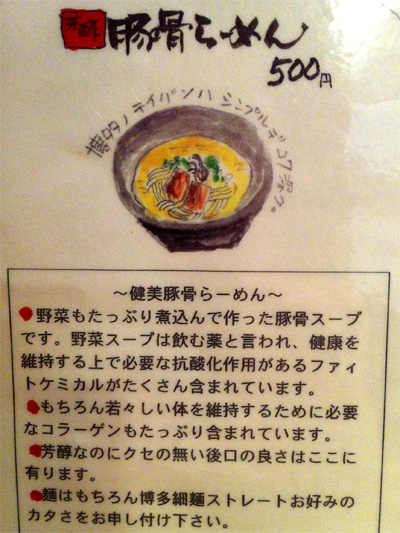 芳醇
豚骨らーめん
500円
博多ノテイバンハシンプルデコク深ク。
～健美豚骨らーめん～
●野菜もたっぷり煮込んで作った豚骨スープ
です。野菜スープは飲む薬と言われ、健康を
維持する上で必要な抗酸化作用があるファイ
トケミカルがたくさん含まれています。
●もちろん若々しい体を維持するために必要
なコラーゲンもたっぷり含まれています。
●芳醇なのにクセの無い後口の良さはここに
有ります。
●麺はもちろん博多細麺ストレートお好みの
カタさをお申し付け下さい。